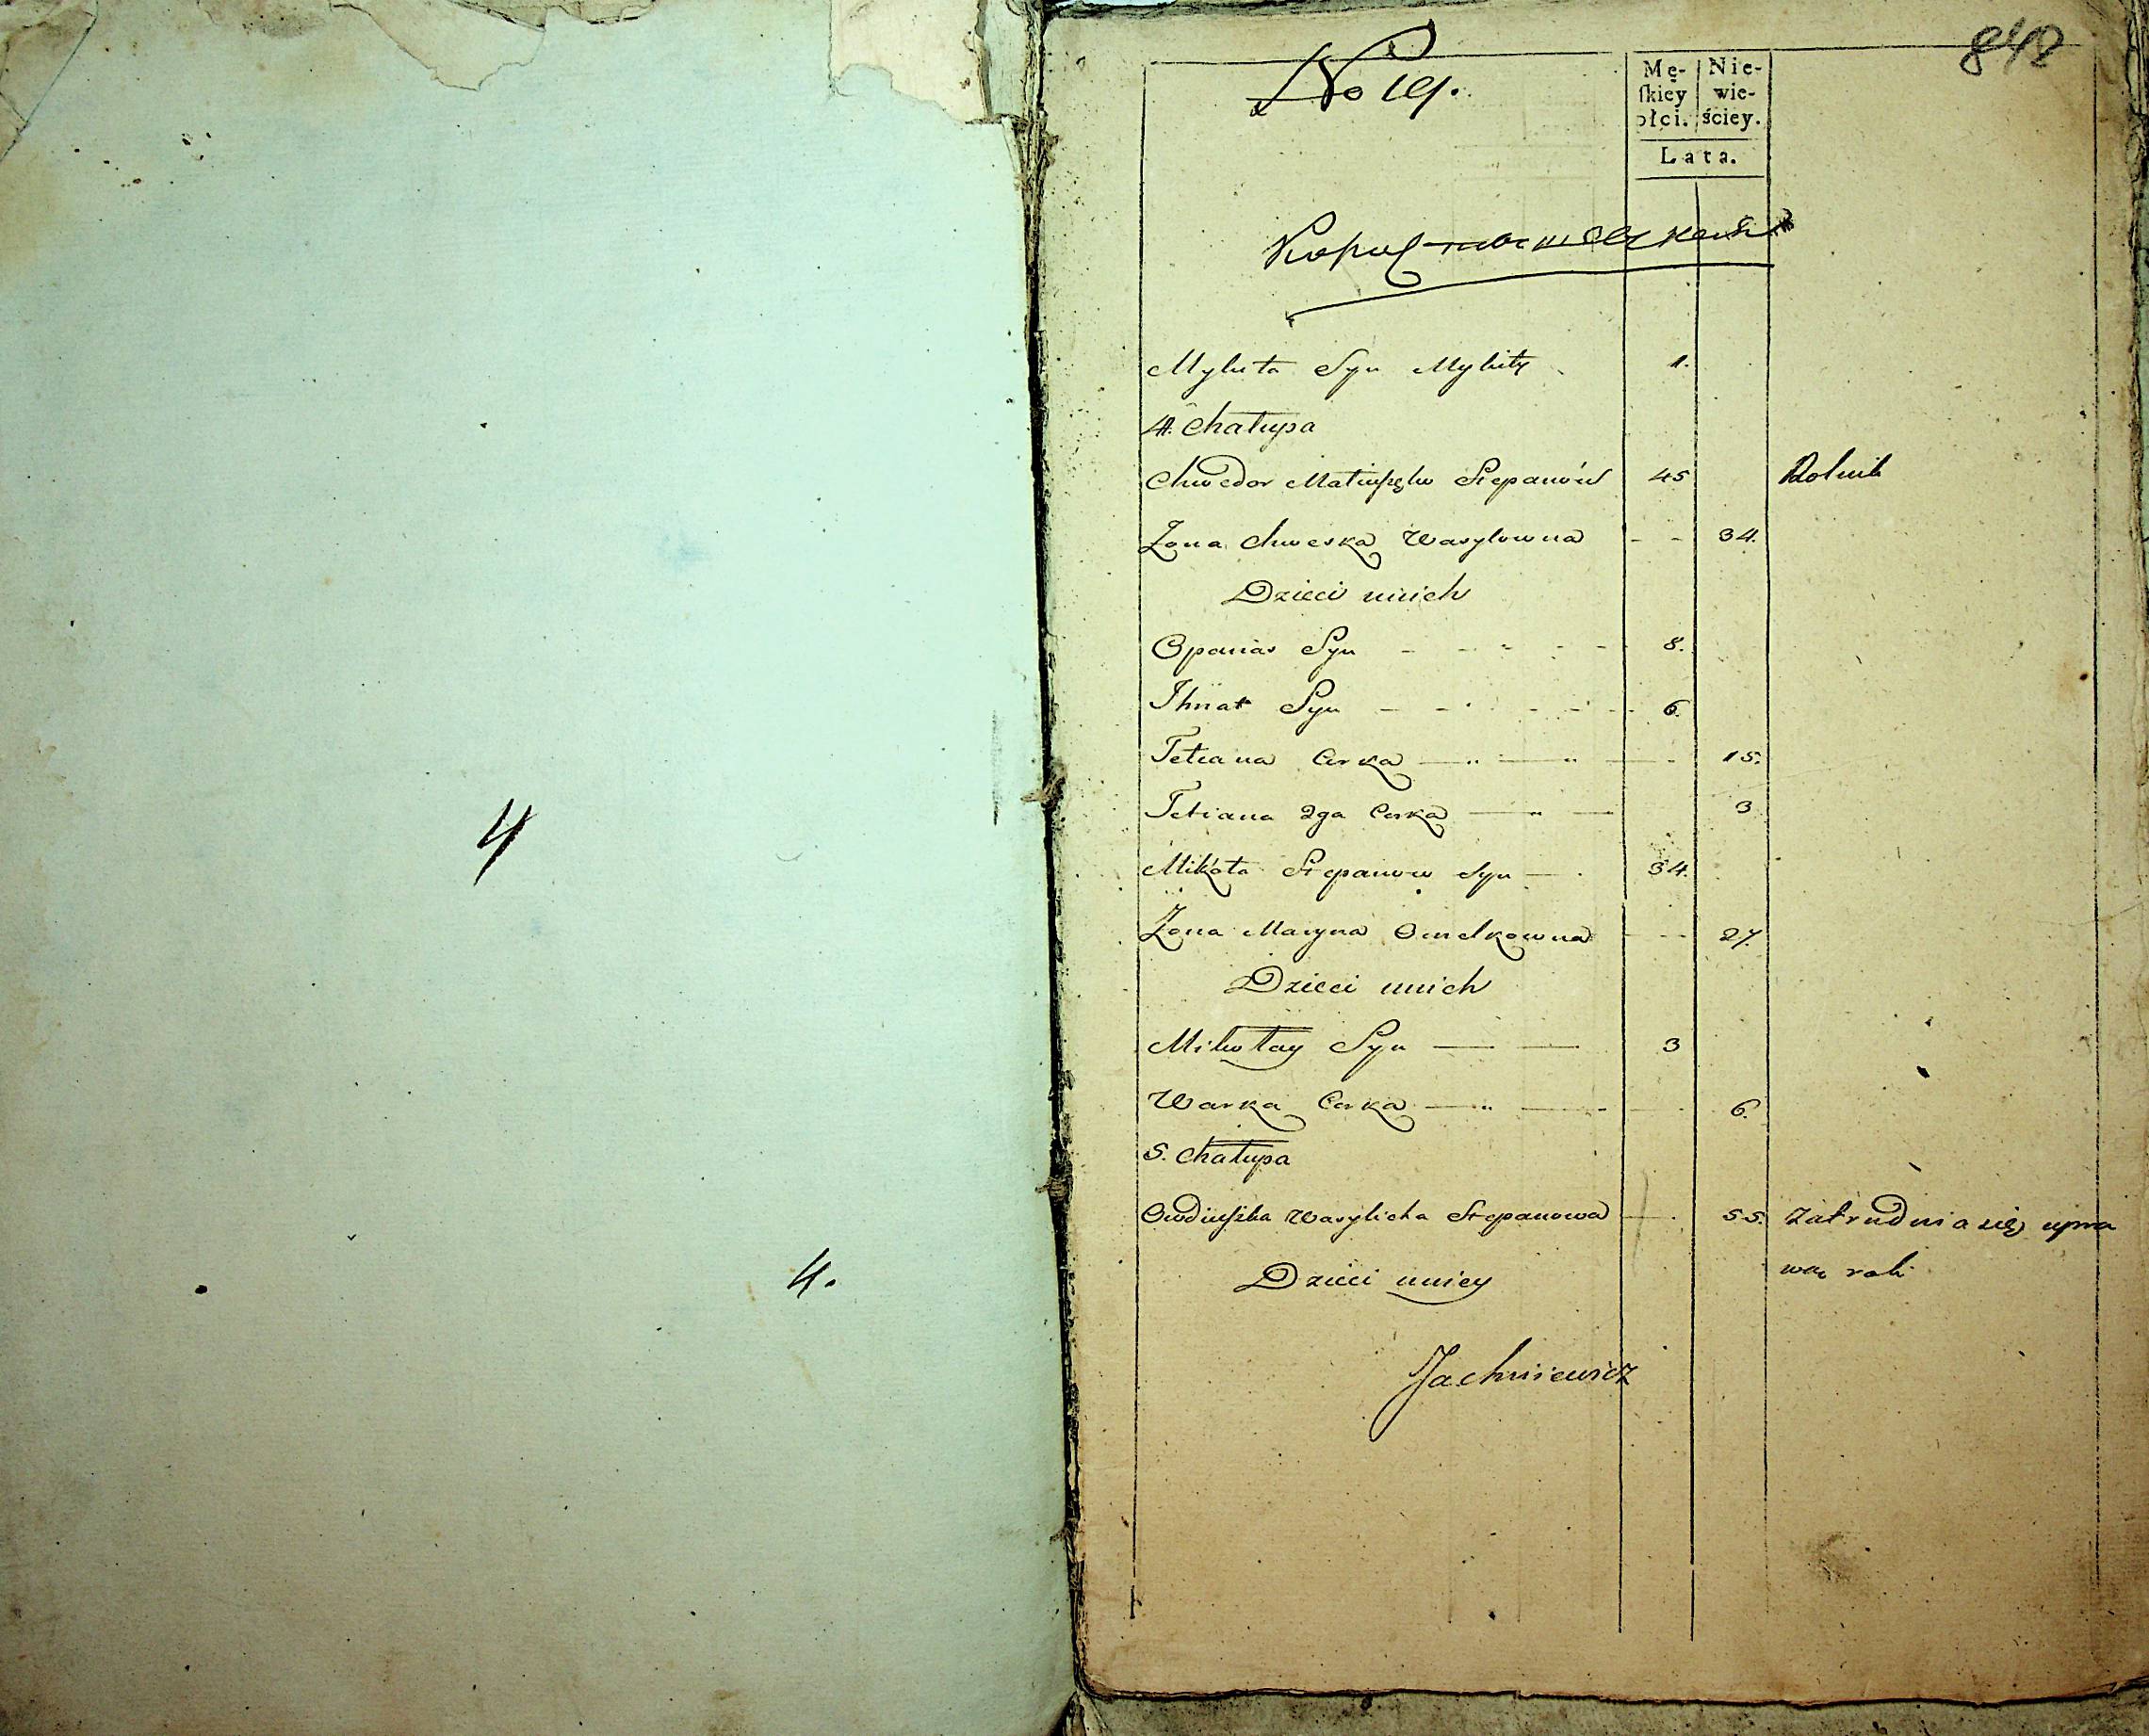 4
4.
842
No 19.
Mę-
ſkiey
płci.
Nie-
wie-
ściey.
Lata.
Mykita Syn Mykity 1.
4. Chałupa
Chwedor Stepanów 45 Rolnik
Żona Chweska Wasylowna - - 34.
Dzieci unich
Opanas Syn - - - - - 8.
Ihnat Syn - - - - - 6.
Tetiana Corka — " — " — - 15.
Tetiana 2ga Corka — " — 3
Mikoła Stepanow Syn — . 34.
Żona Maryna Omelkowna - - - 27.
Dzieci unich
Mikołay Syn — — 3
Warka Corka — " — - 6.
5. Chałupa
Owdiuſzka Wasylicha Stepanowa — . 55. Zatrudnia się upra
wą roli
Dzieci uniey
Jachniewicz